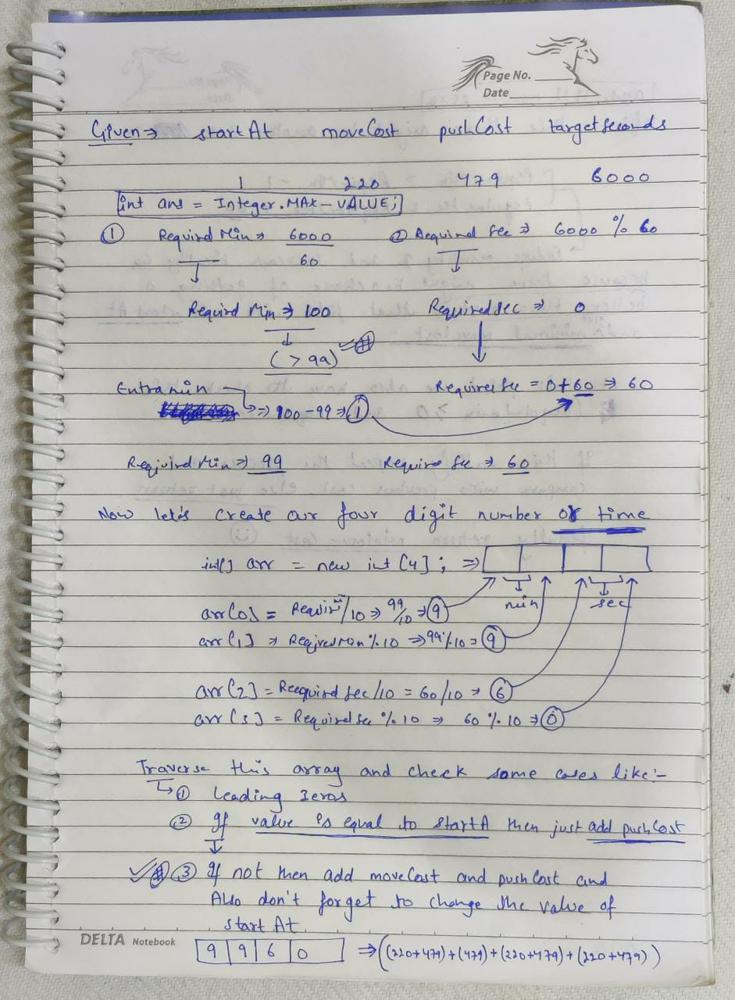 Page No.
Date
Given ⇒ startAt moveCost pushCost targetSeconds
1 220 479 6000
int ans = Integer.MAX_VALUE;
① Required Min ⇒ 6000/60 ② Required Sec ⇒ 6000 % 60
Required Min ⇒ 100 Required sec ⇒ 0
(> 99)
Extra min ⇒ 100-99 ⇒ ① Required Sec = 0+60 ⇒ 60
Required Min ⇒ 99 Require Sec ⇒ 60
Now let's create our four digit number or time
int[] arr = new int[4]; ⇒
min sec
arr[0] = Required Min/10 ⇒ 99/10 ⇒ ⑨
arr[1] ⇒ Required Min % 10 ⇒ 99 % 10 ⇒ ⑨
arr[2] = Reequired Sec/10 = 60/10 ⇒ ⑥
arr[3] = Required Sec % 10 ⇒ 60 % 10 ⇒ ⓪
Traverse this array and check some cases like:-
① Leading Zeros
② If value is equal to startA then just add pushCost
③ If not then add moveCost and pushCost and
Also don't forget to change the value of
start At
DELTA Notebook
9 9 6 0 ⇒ ((220+479)+(479)+(220+479)+(220+479))